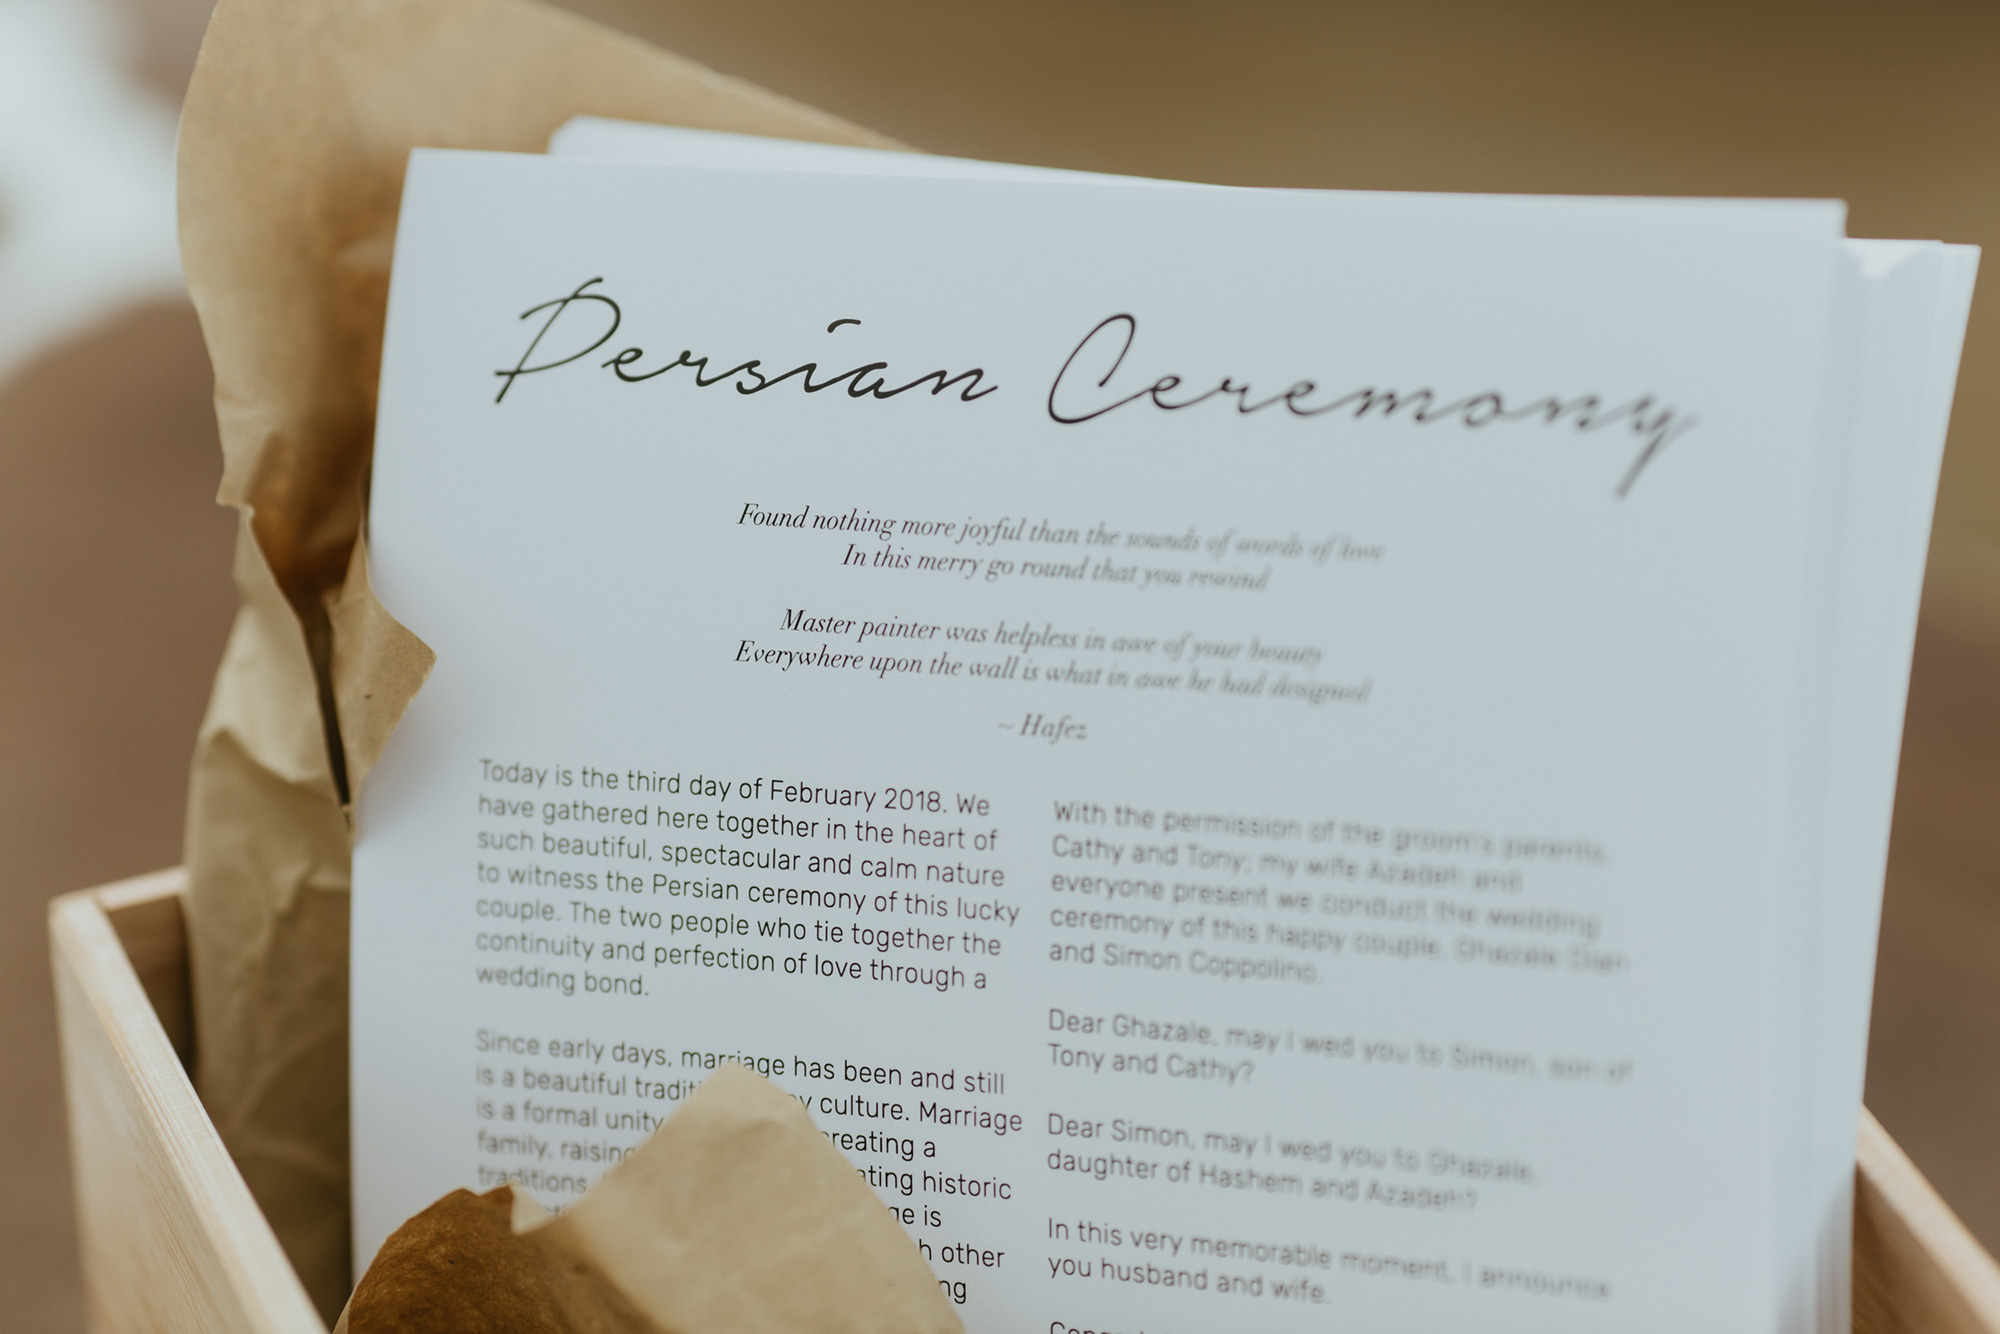 Persian Ceremony
Found nothing more joyful than the sounds of words of love
In this merry go round that you rewind
Master painter was helpless in awe of your beauty
Everywhere upon the wall is what in awe he had designed
~ Hafez
Today is the third day of February 2018. We
have gathered here together in the heart of
such beautiful, spectacular and calm nature
to witness the Persian ceremony of this lucky
couple. The two people who tie together the
continuity and perfection of love through a
wedding bond.
Since early days, marriage has been and still
is a beautiful culture. Marriage
is a formal unity creating a
family, raising historic
traditions is
other
With the permission of the groom's parents,
Cathy and Tony; my wife Azadeh and
everyone present we conduct the wedding
ceremony of this happy couple, Ghazale
and Simon Coppolino.
Dear Ghazale, may I wed you to Simon, son of
Tony and Cathy?
Dear Simon, may I wed you to Ghazale,
daughter of Hashem and Azadeh?
In this very memorable moment, I announce
you husband and wife.